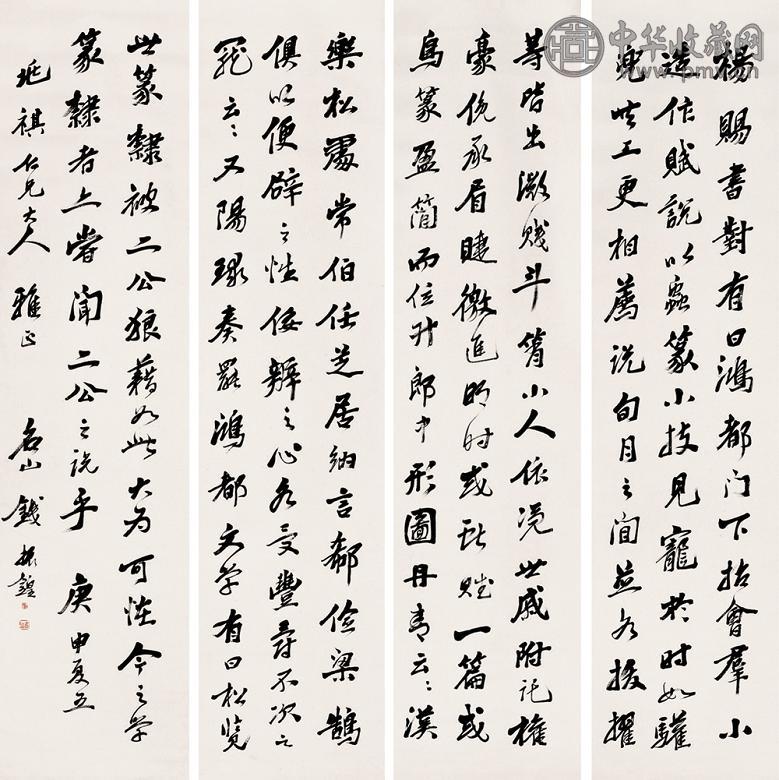 楊賜書對有曰鴻都門下招會羣小
造作賦說以蟲篆小技見寵於時如驩
兜共工更相薦說旬月之間並各拔擢
等皆出微賤斗筲小人依憑世戚附託權
豪俛承眉睫徼進明時或獻賦一篇或
鳥篆盈簡而位升郎中形圖丹青云云漢
樂松處常伯任芝居納言郗儉梁鵠
俱以便辟之性佞辯之心各受豐爵不次之
寵云云又陽球奏罷鴻都文學有曰松覽
世篆隸被二公狼藉如此大為可怪今之學
篆隸者亦嘗聞二公之說乎 庚申夏五
兆祺仁兄大人雅正 名山錢振鍠
中华收藏网